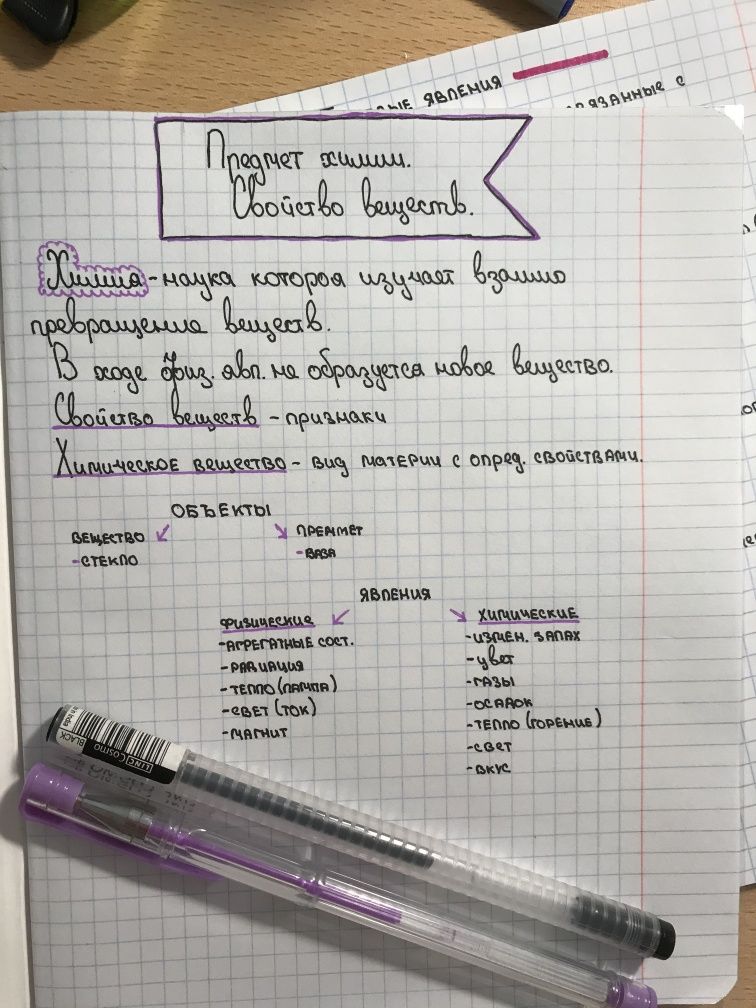 ЫЕ ЯВЛЕНИЯ
ВЯЗАННЫЕ С
Предмет химии.
Свойство веществ.
Химия - наука которая изучает взаимо
превращение веществ.
В ходе физ. явл. не образуется новое вещество.
Свойство веществ - признаки
Химическое вещество - вид материи с опред. свойствами.
ОБЪЕКТЫ
ВЕЩЕСТВО ПРЕДМЕТ
-СТЕКЛО -ВАЗА
ЯВЛЕНИЯ
ФИЗИЧЕСКИЕ ХИМИЧЕСКИЕ
-АГРЕГАТНЫЕ СОСТ. -ИЗМЕН. ЗАПАХ
-РАДИАЦИЯ -ЦВЕТ
-ТЕПЛО (ЛАМПА) -ГАЗЫ
-СВЕТ (ТОК) -ОСАДОК
-МАГНИТ -ТЕПЛО (ГОРЕНИЕ)
-СВЕТ
-ВКУС
BLACK
LINC Cosmo